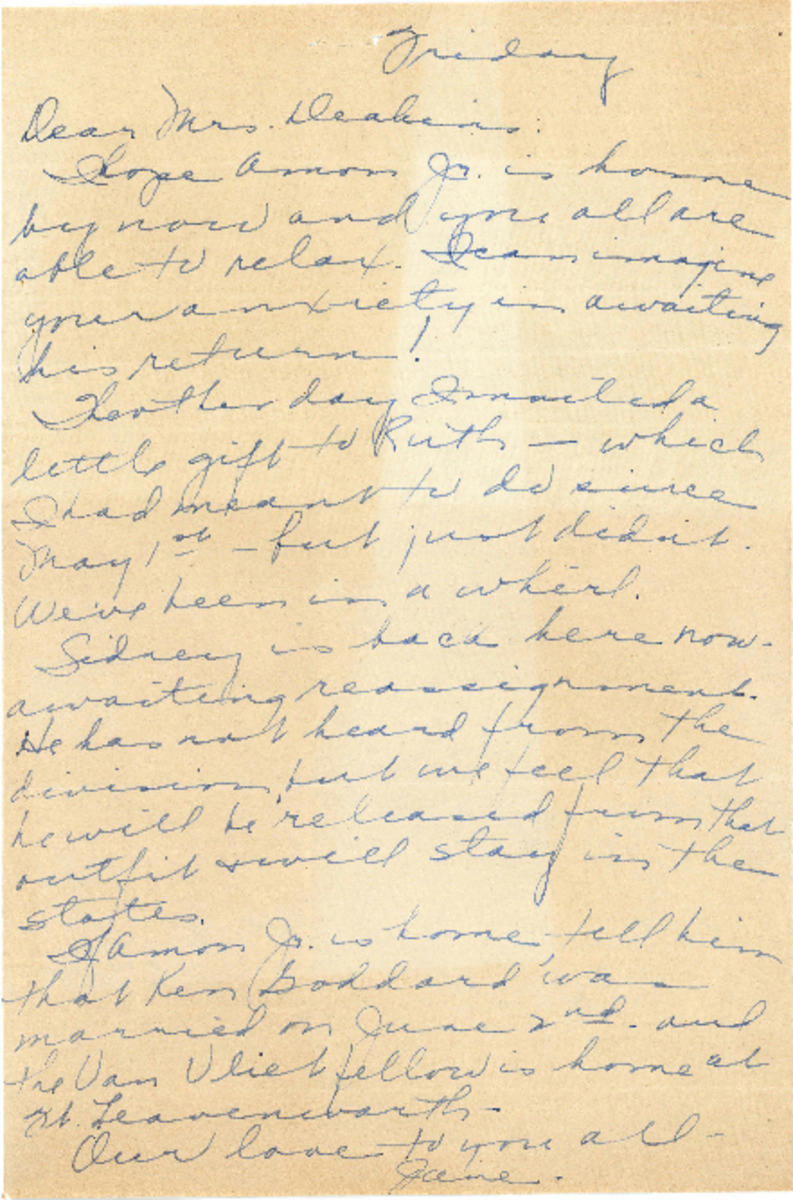 Friday
Dear Mrs. Deakins:
I hope Amon Jr. is home
by now and you all are
able to relax. I can imagine
your anxiety in awaiting
his return!
The other day I mailed a
little gift to Ruth — which
I had meant to do since
May 1st - but just didn't.
We've been in a whirl.
Sidney is back here now -
awaiting reassignment.
He has not heard from the
division, but we feel that
he will be released from that
outfit & will stay in the
states.
If Amon Jr. is home, tell him
that Ken Goddard was
married on June 2nd. and
the Van Vliet fellow is home at
Ft. Leavenworth -
Our love to you all -
Jane.